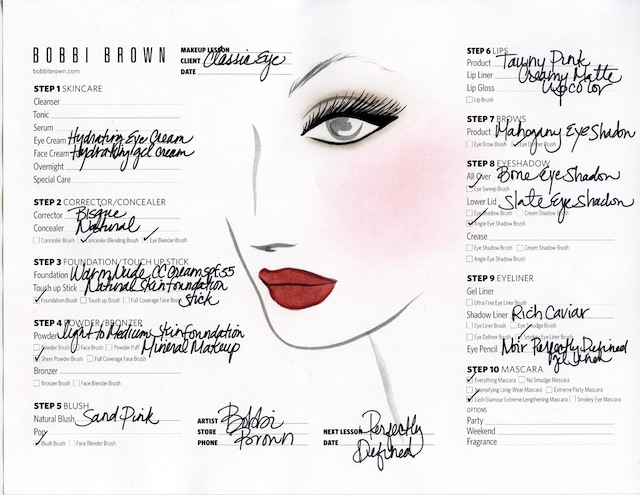 BOBBI BROWN
bobbibrown.com
MAKEUP LESSON
CLIENT Classic Eye
DATE
STEP 1 SKINCARE
Cleanser
Tonic
Serum
Eye Cream Hydrating Eye Cream
Face Cream Hydrating gel cream
Overnight
Special Care
STEP 2 CORRECTOR/CONCEALER
Corrector Bisque
Concealer Natural
Concealer Brush Concealer Blending Brush Eye Blender Brush
STEP 3 FOUNDATION/TOUCH UP STICK
Foundation Warm Nude CC Cream SPF 35
Touch up Stick Natural Skin Foundation
Stick
Foundation Brush Touch up Brush Full Coverage Face Brush
STEP 4 POWDER/BRONZER
Powder light to Medium Skin Foundation
Mineral Makeup
Powder Brush Face Brush Powder Puff
Sheer Powder Brush Full Coverage Face Brush
Bronzer
Bronzer Brush Face Blender Brush
STEP 5 BLUSH
Natural Blush Sand Pink
Pop
Blush Brush Face Blender Brush
ARTIST Bobbi
STORE Brown
PHONE
NEXT LESSON Perfectly
DATE Defined
STEP 6 LIPS
Product Tawny Pink
Lip Liner Creamy Matte
Lip Gloss Lipcolor
Lip Brush
STEP 7 BROWS
Product Mahogany Eye Shadow
Eye Brow Brush Eye Definer Brush
STEP 8 EYESHADOW
All Over Bone Eye Shadow
Eye Sweep Brush
Lower Lid Slate Eye Shadow
Eye Shadow Brush Cream Shadow Brush
Angle Eye Shadow Brush
Crease
Eye Shadow Brush Cream Shadow Brush
Angle Eye Shadow Brush
STEP 9 EYELINER
Gel Liner
Ultra Fine Eye Liner Brush
Shadow Liner Rich Caviar
Eye Liner Brush Eye Smudge Brush
Eye Definer Brush Smokey Eye Liner Brush
Eye Pencil Noir Perfectly Defined
gel
STEP 10 MASCARA
Everything Mascara No Smudge Mascara
Intensifying Long-Wear Mascara Extreme Party Mascara
Lash Glamour Extreme Lengthening Mascara Smokey Eye Mascara
OPTIONS
Party
Weekend
Fragrance